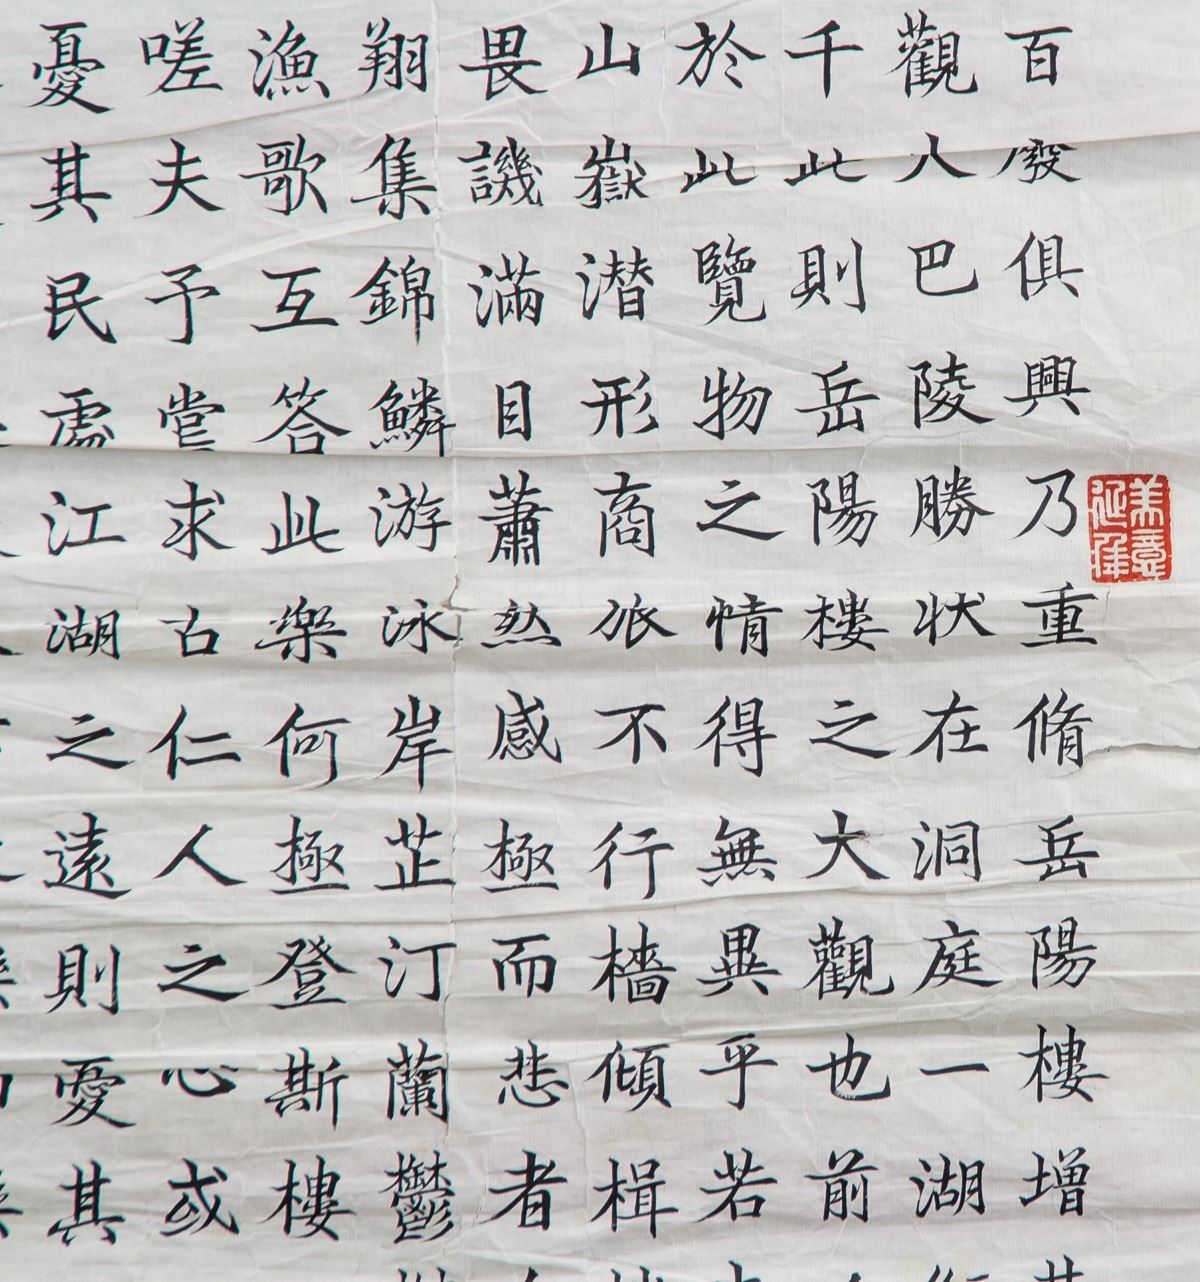 百廢俱興乃重脩岳陽樓增
觀人巴陵勝狀在洞庭一湖
千此則岳陽樓之大觀也前
於此覽物之情得無異乎若
山嶽潛形商旅不行檣傾楫
畏譏滿目蕭然感極而悲者
翔集錦鱗游泳岸芷汀蘭鬱
漁歌互答此樂何極登斯樓
嗟夫予嘗求古仁人之心或
憂其民處江湖之遠則憂其